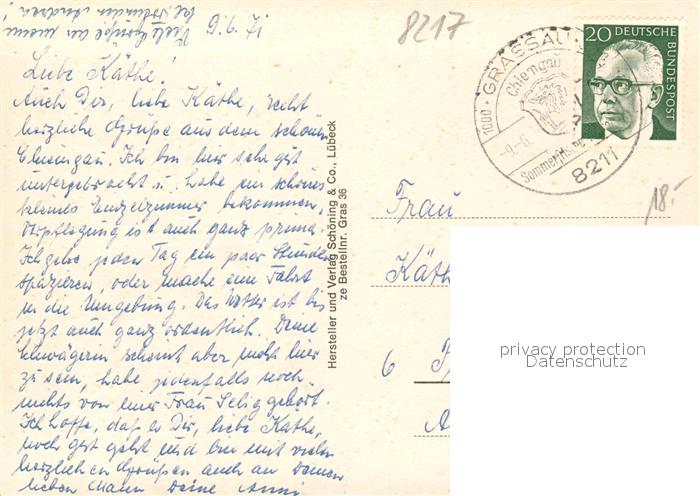 9.6.71
Liebe Käthe!
Auch Dir, liebe Käthe, recht
herzliche Grüße aus dem schönen
Chiemgau. Ich bin hier sehr gut
untergebracht u. habe ein schönes
kleines Einzelzimmer bekommen,
Verpflegung ist auch ganz prima.
Ich gehe jeden Tag ein paar Stunden
spazieren, oder mache eine Fahrt
in die Umgebung. Das Wetter ist bis
jetzt auch ganz ordentlich. Deine
Schwägerin scheint aber nicht hier
zu sein, habe jedenfalls noch
nichts von einer Frau Selig gehört.
Ich hoffe, daß es Dir, liebe Käthe,
noch gut geht und bin mit vielen
herzlichen Grüßen auch an Deinen
lieben Mann Deine Anni
Viele Grüße an
Hersteller und Verlag Schöning & Co., Lübeck
ze Bestellnr. Gras 36
8217
1000 · GRASSAU
Chiemgau
-9.-6.
8211
20 DEUTSCHE
BUNDESPOST
18.-
Frau
Käth
6
privacy protection
Datenschutz